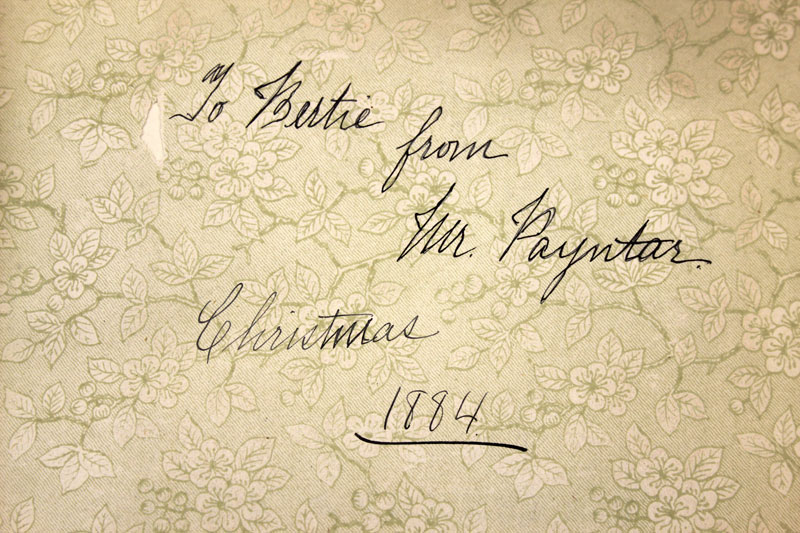 To Bertie
from
Mr. Payntar.
Christmas
1884.